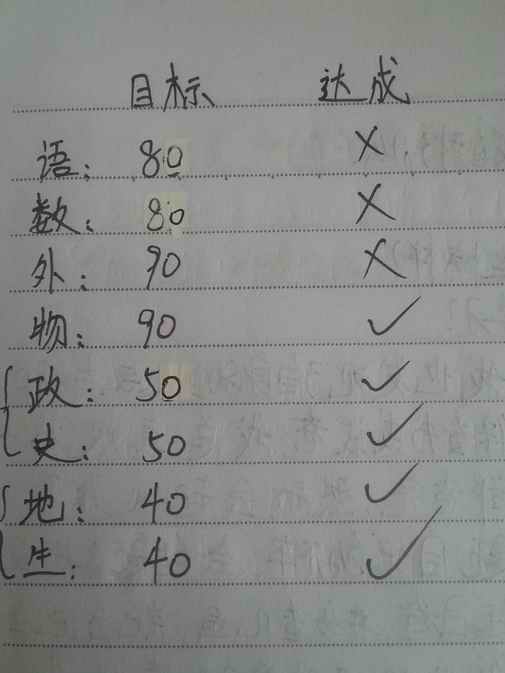 目标 达成
语: 80 ×
数: 80 ×
外: 90 ×
物: 90 ✓
政: 50 ✓
史: 50 ✓
地: 40 ✓
生: 40 ✓